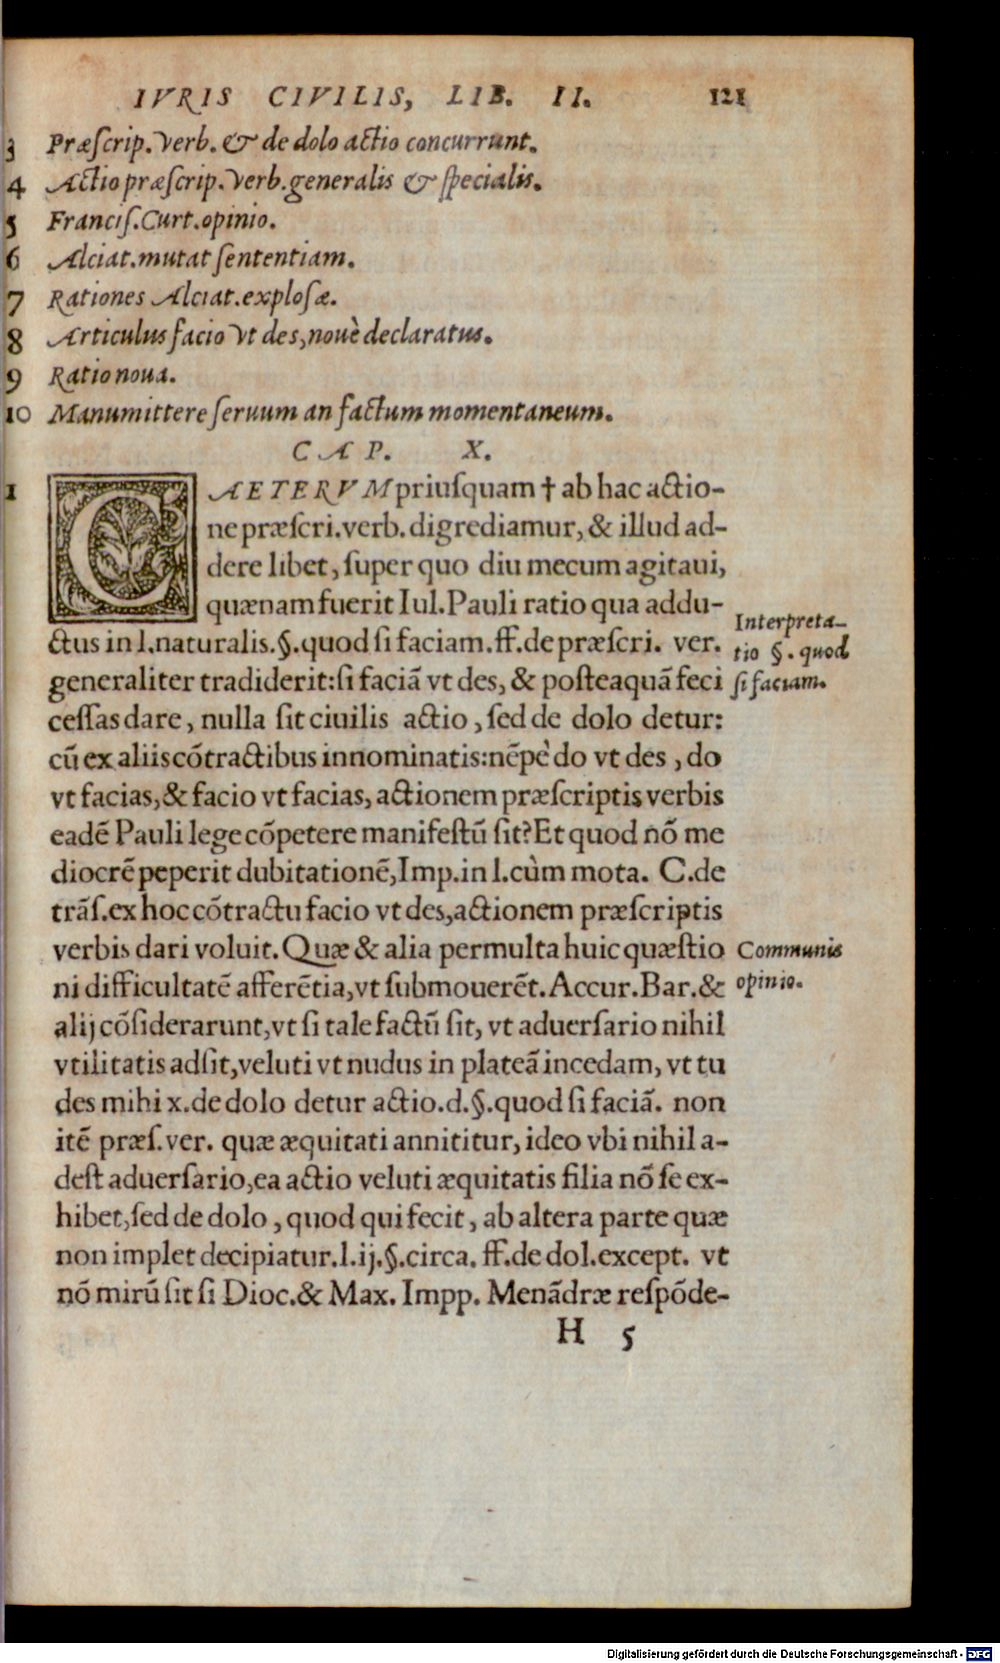 IVRIS CIVILIS, LIB. II. 121
3 Præſcrip. verb. & de dolo actio concurrunt.
4 Actio præſcrip. verb. generalis & ſpecialis.
5 Franciſ. Curt. opinio.
6 Alciat. mutat ſententiam.
7 Rationes Alciat. exploſæ.
8 Articulus facio vt des, nouè declaratus.
9 Ratio noua.
10 Manumittere ſeruum an factum momentaneum.
CAP. X.
1 CAETERVM priuſquam † ab hac actio-
ne præſcri. verb. digrediamur, & illud ad-
dere libet, ſuper quo diu mecum agitaui,
quænam fuerit Iul. Pauli ratio qua addu-
ctus in l. naturalis. §. quod ſi faciam. ff. de præſcri. ver.
Interpreta-
tio §. quod
ſi faciam.
generaliter tradiderit: ſi faciã vt des, & poſteaquã feci
ceſſas dare, nulla ſit ciuilis actio, ſed de dolo detur:
cũ ex aliis cõtractibus innominatis: nẽpè do vt des, do
vt facias, & facio vt facias, actionem præſcriptis verbis
eadẽ Pauli lege cõpetere manifeſtũ ſit? Et quod nõ me
diocrẽ peperit dubitationẽ, Imp. in l. cùm mota. C. de
trãſ. ex hoc cõtractu facio vt des, actionem præſcriptis
verbis dari voluit. Quæ & alia permulta huic quæſtio
Communis
opinio.
ni difficultatẽ afferẽtia, vt ſubmouerẽt. Accur. Bar. &
alij cõſiderarunt, vt ſi tale factũ ſit, vt aduerſario nihil
vtilitatis adſit, veluti vt nudus in plateã incedam, vt tu
des mihi x. de dolo detur actio. d. §. quod ſi faciã. non
itẽ præſ. ver. quæ æquitati annititur, ideo vbi nihil a-
deſt aduerſario, ea actio veluti æquitatis filia nõ ſe ex-
hibet, ſed de dolo, quod qui fecit, ab altera parte quæ
non implet decipiatur. l. ij. §. circa. ff. de dol. except. vt
nõ mirũ ſit ſi Dioc. & Max. Impp. Menãdræ reſpõde-
H 5
Digitalisierung gefördert durch die Deutsche Forschungsgemeinschaft - DFG